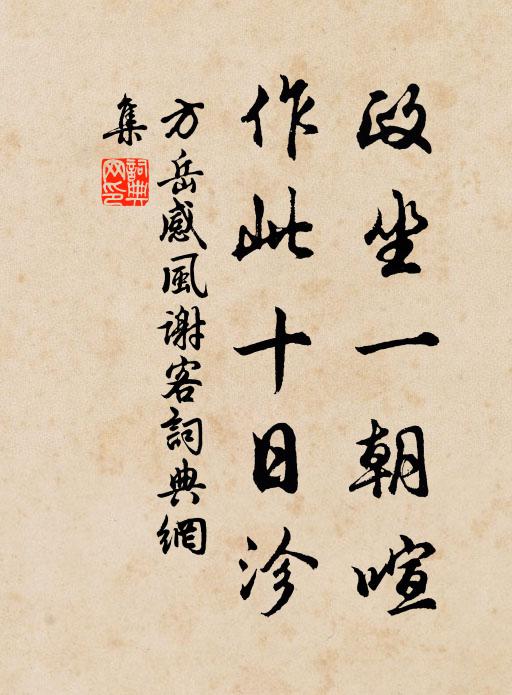 政坐一朝暄
作此十日沴
方岳感風谢客詞典網
集
詞典網印